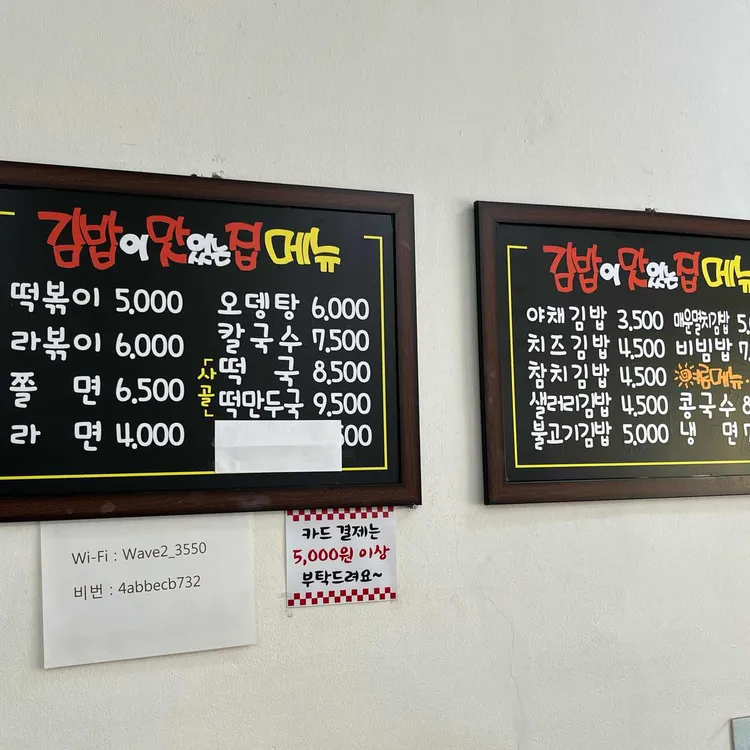 김밥이 맛있는집 메뉴
떡볶이 5,000
라볶이 6,000
쫄 면 6,500
라 면 4,000
오뎅탕 6,000
칼국수 7,500
「사골」
떡 국 8,500
떡만두국 9,500
Wi-Fi : Wave2_3550
비번 : 4abbecb732
카드 결제는
5,000원 이상
부탁드려요~
김밥이 맛있는집 메뉴
야채김밥 3,500
치즈김밥 4,500
참치김밥 4,500
샐러리김밥 4,500
불고기김밥 5,000
매운멸치김밥
비빔밥
여름메뉴
콩국수
냉 면